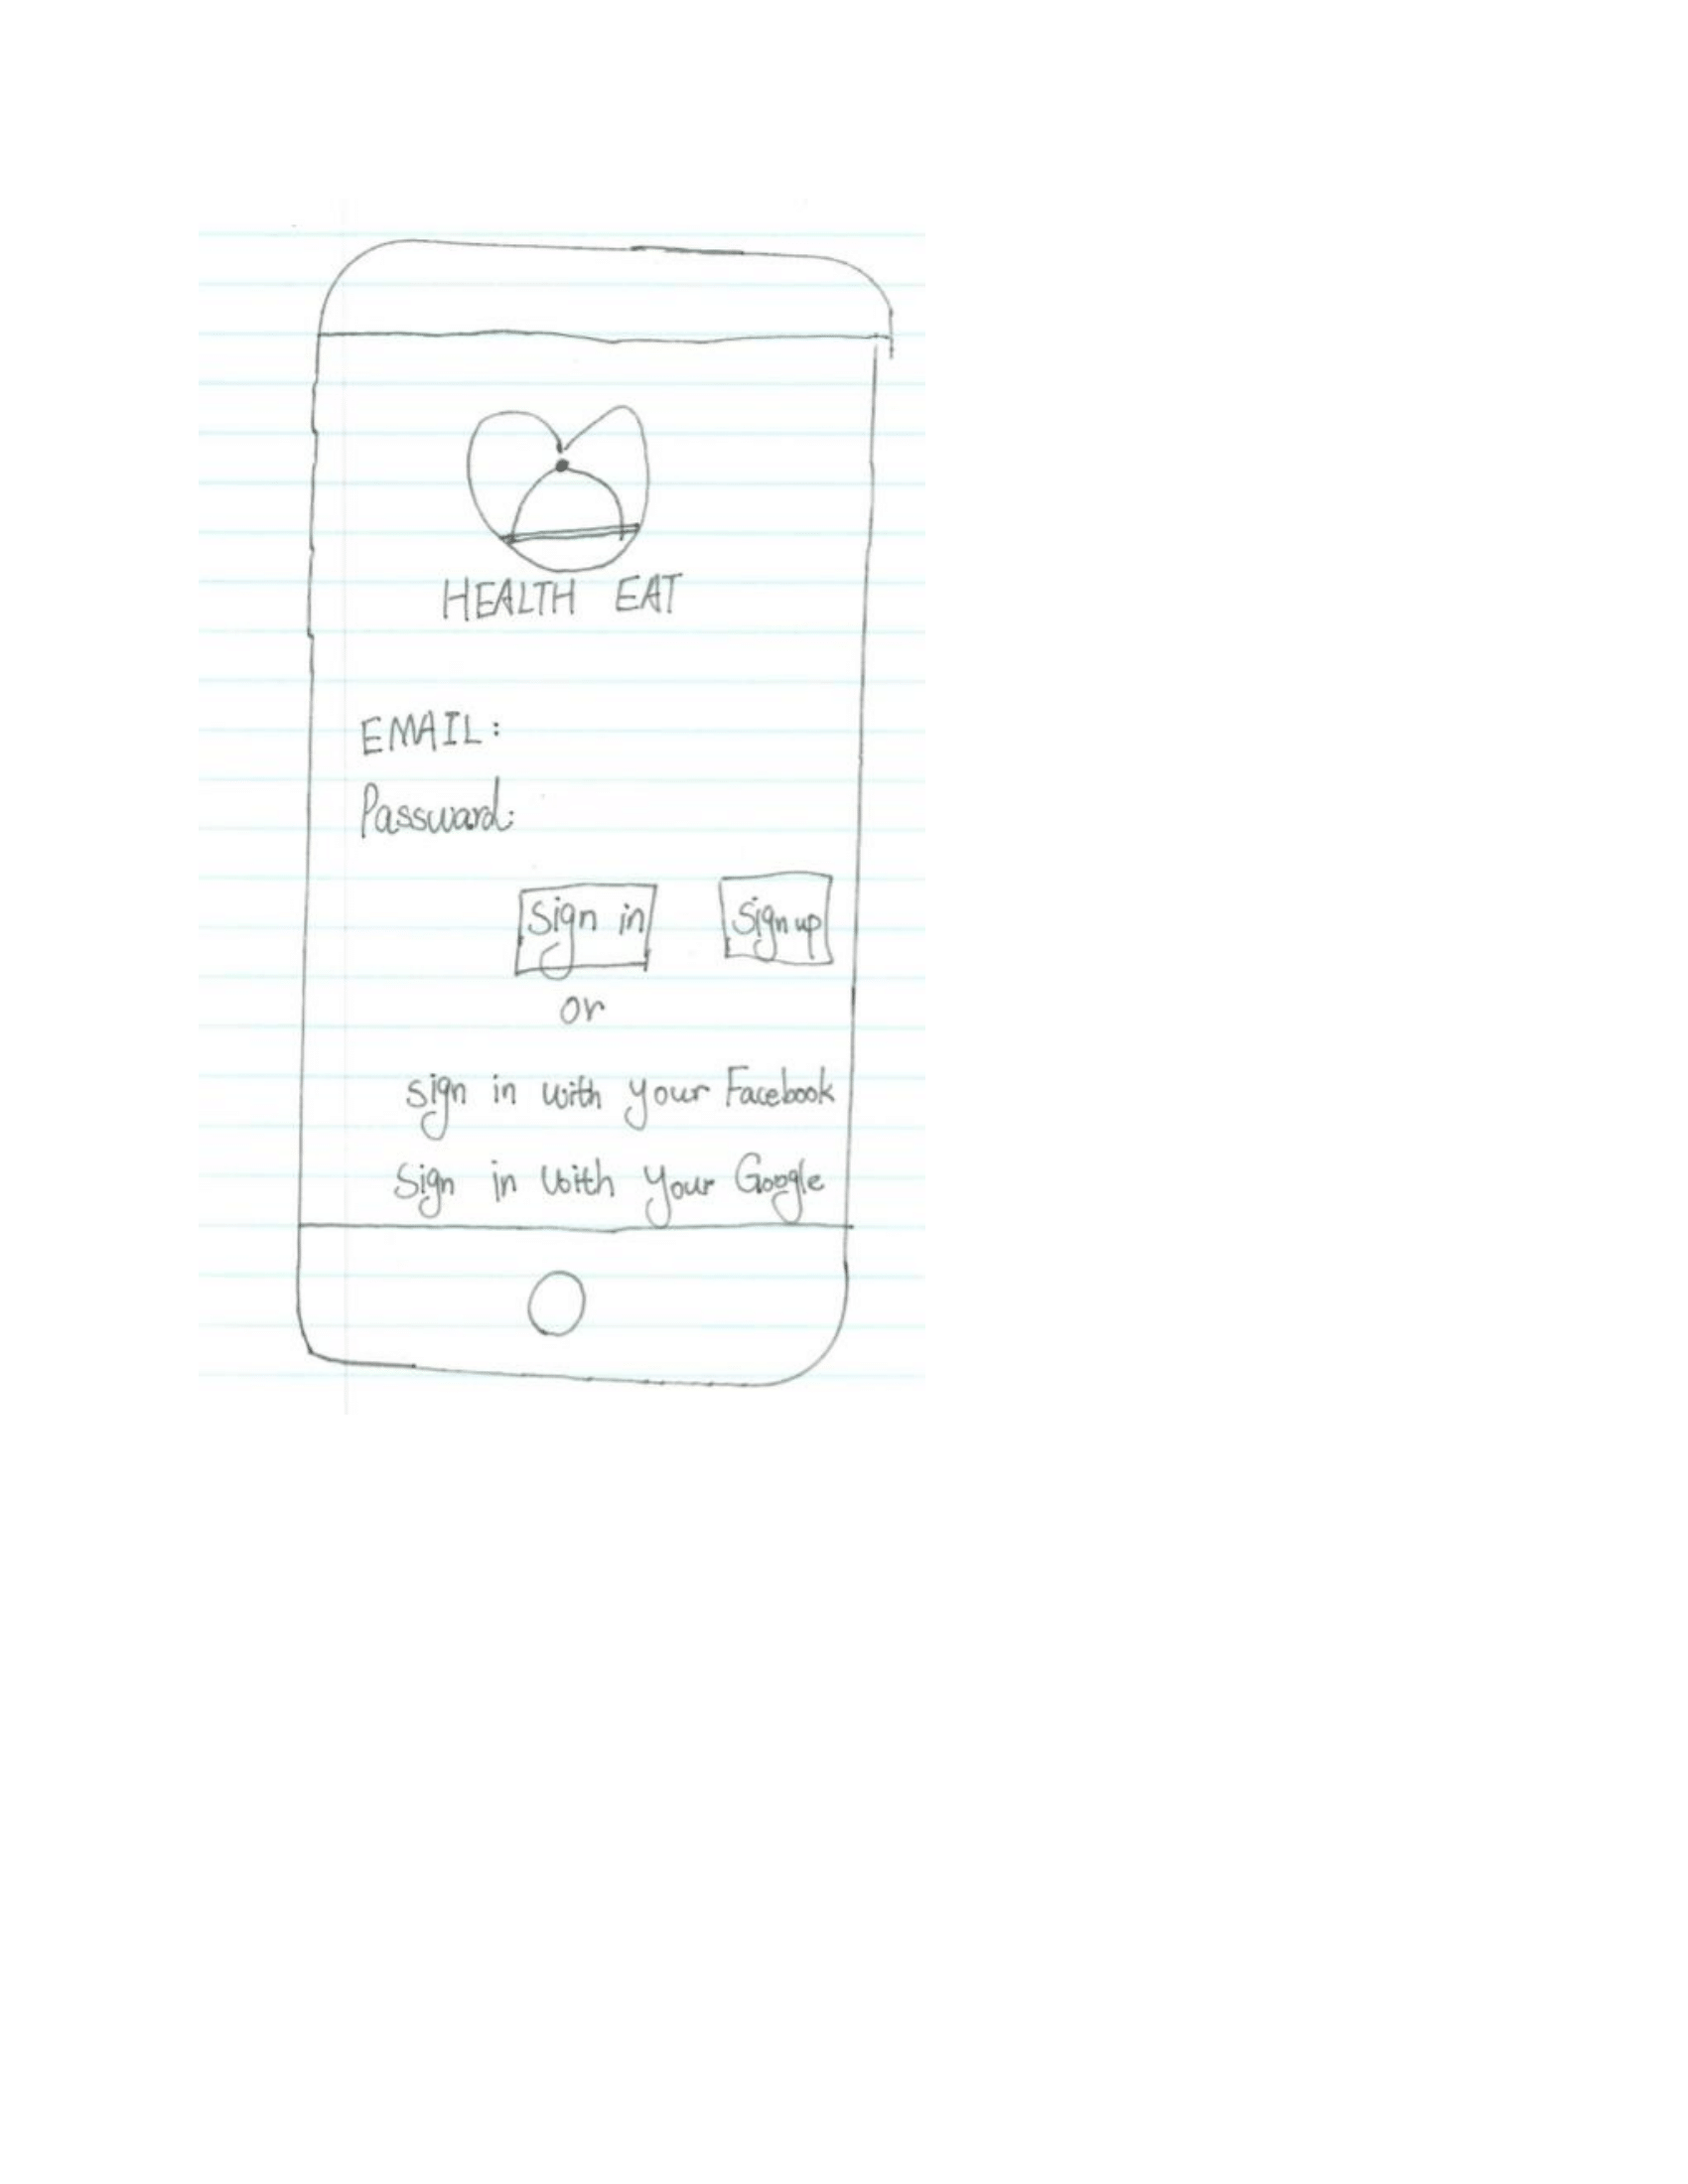 HEALTH EAT
EMAIL:
Passward:
Sign in Sign up
or
sign in with your Facebook
Sign in with your Google